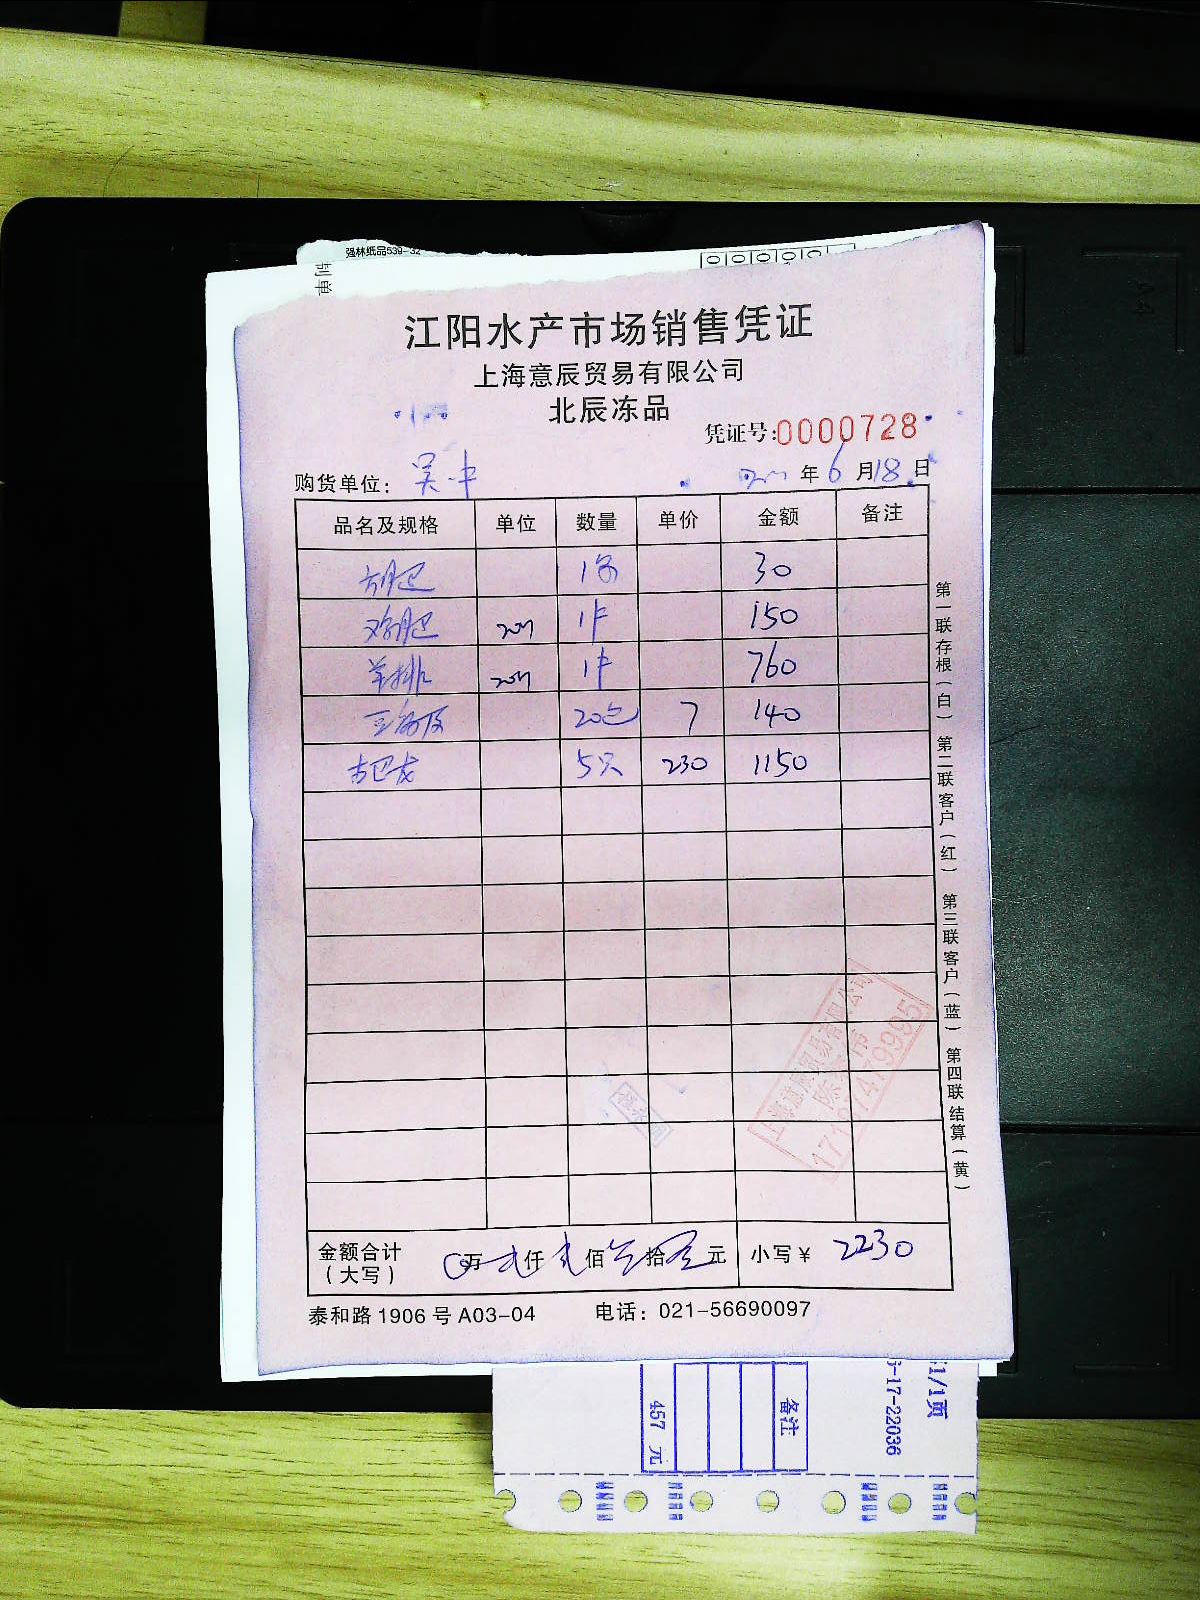 强林纸品539-32
制单
江阳水产市场销售凭证
上海意辰贸易有限公司
北辰冻品
凭证号:0000728
购货单位: 吴 年 6 月 18 日
品名及规格 单位 数量 单价 金额 备注
方腿 1 30
鸡腿 1件 150
羊排 1件 760
20包 7 140
古巴龙 5只 230 1150
金额合计 万 仟 佰 拾 元 小写¥ 2230
(大写)
泰和路1906号A03-04 电话: 021-56690097
第一联存根(白) 第二联客户(红) 第三联客户(蓝) 第四联结算(黄)
上海意辰贸易有限公司
陈 伟
17187479995
1/1页
-17-22036
备注
457 元